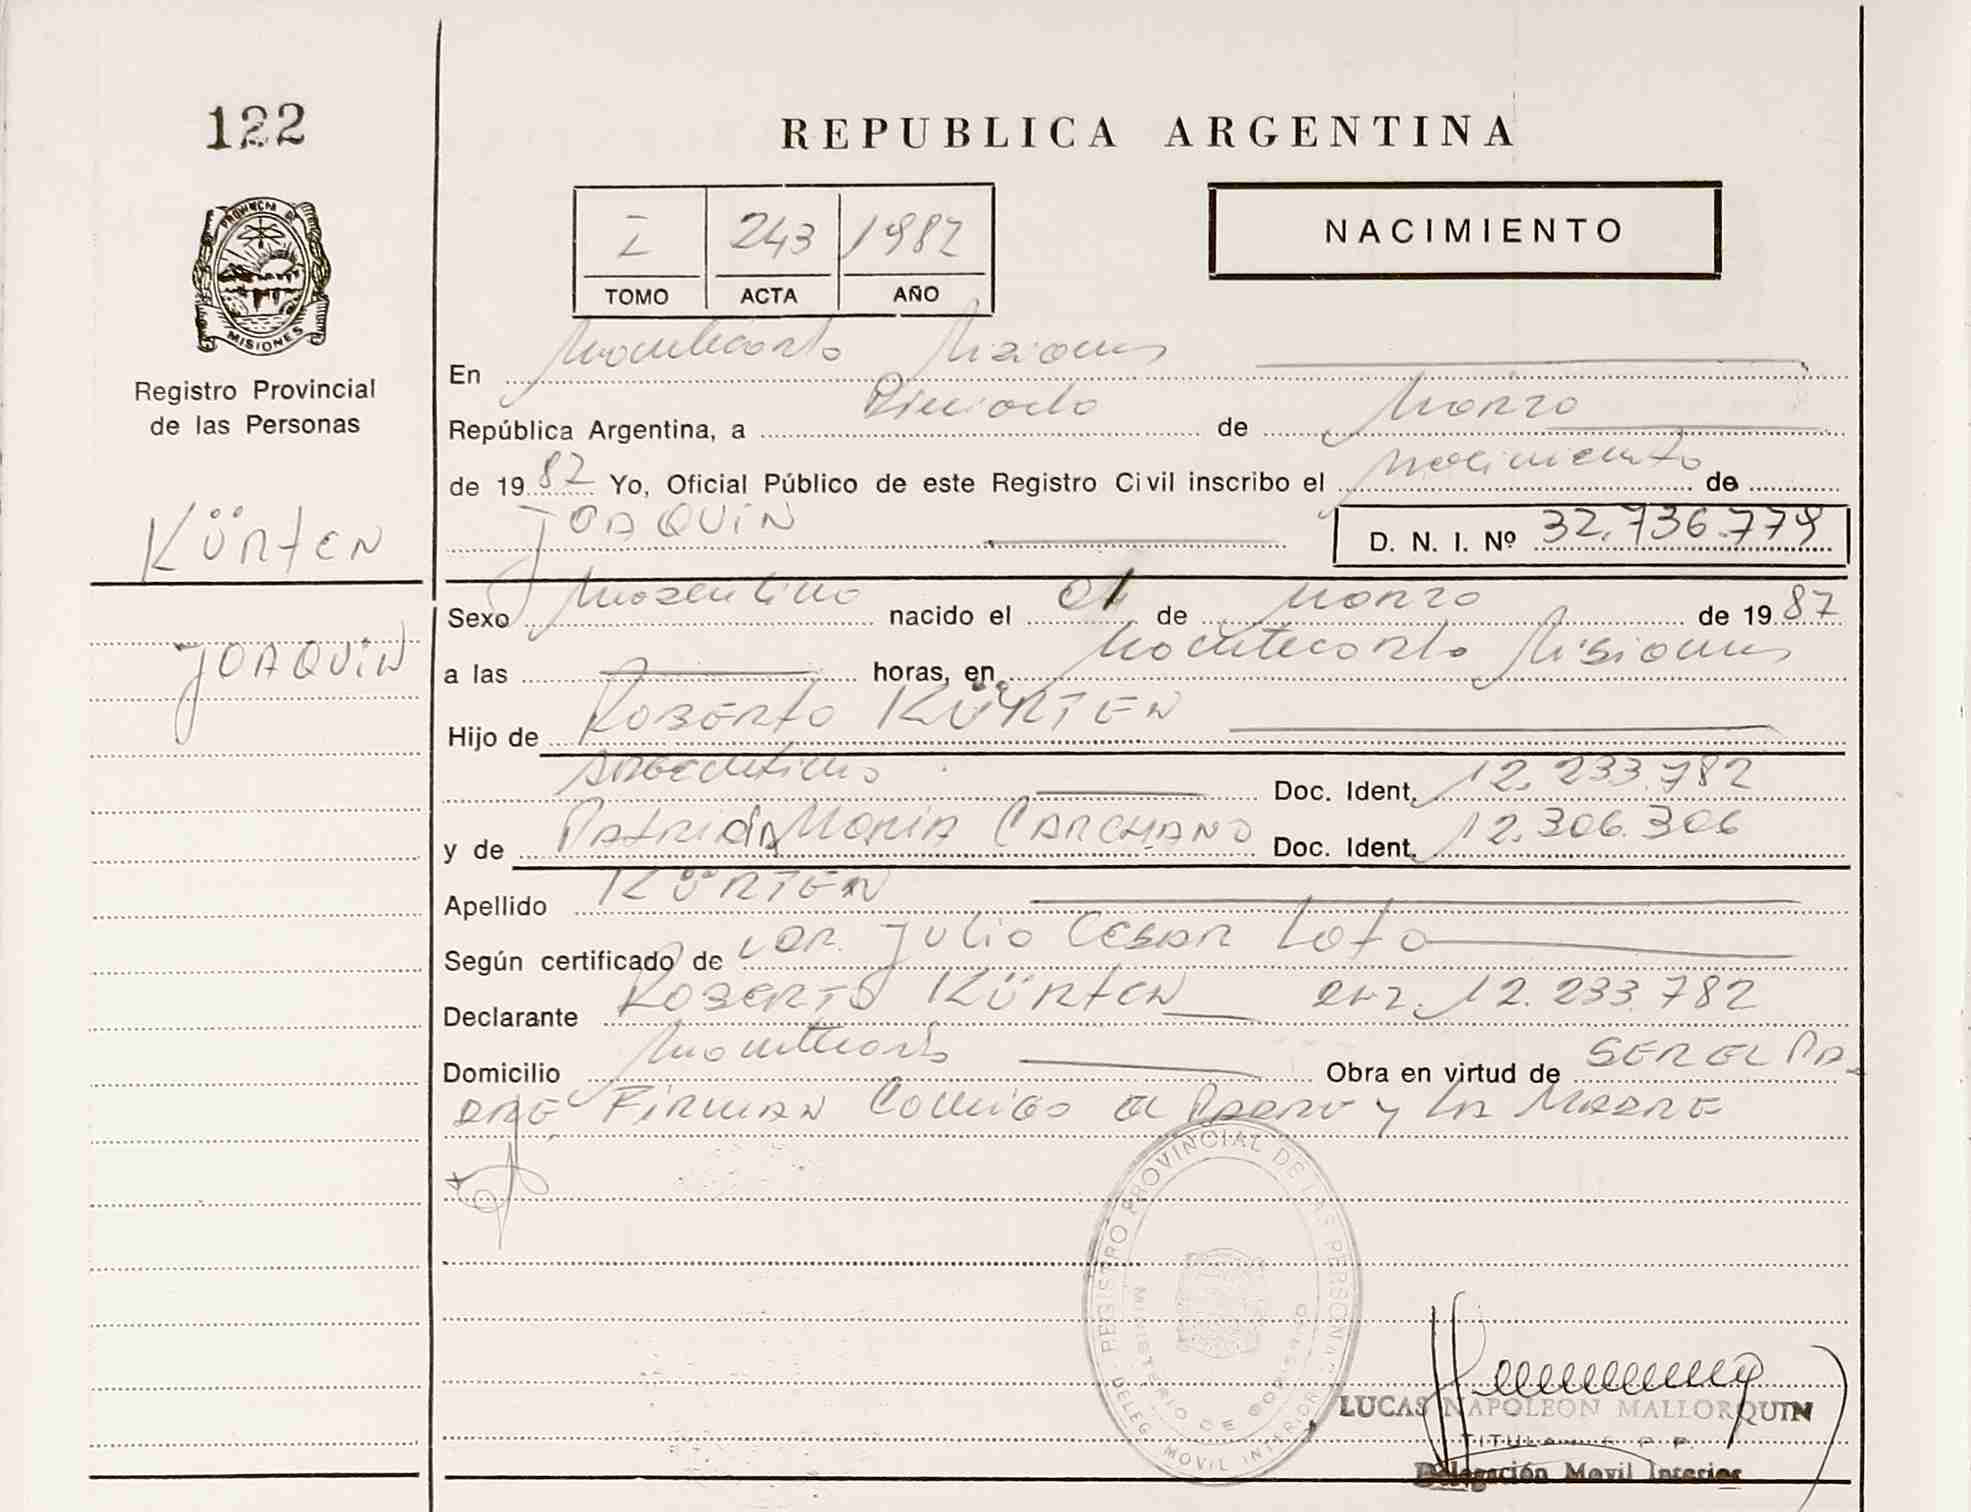 122
REPUBLICA ARGENTINA
PROVINCIA DE
MISIONES
Registro Provincial
de las Personas
I 243 1987
TOMO ACTA AÑO
NACIMIENTO
En Montecarlo Misiones
República Argentina, a Dieciocho de Marzo
de 1987 Yo, Oficial Público de este Registro Civil inscribo el Nacimiento de
JOAQUIN D. N. I. Nº 32.736.779
KÜRTEN
JOAQUIN
Sexo Masculino nacido el 01 de Marzo de 1987
a las horas, en Montecarlo Misiones
Hijo de Roberto KÜRTEN
Argentino Doc. Ident. 12.233.782
y de Patricia Maria CARCHANO Doc. Ident. 12.306.306
Apellido KÜRTEN
Según certificado de Dr. Julio Cesar
Declarante Roberto KÜRTEN 12.233.782
Domicilio Montecarlo Obra en virtud de SER EL PA
DRE FIRMAN CONMIGO EL PADRE y LA MADRE
REGISTRO PROVINCIAL DE LAS PERSONAS
MINISTERIO DE GOBIERNO
DELEG. MOVIL INTERIOR
LUCAS NAPOLEON MALLORQUIN
TITULAR R. P. P.
Delegación Movil Interior